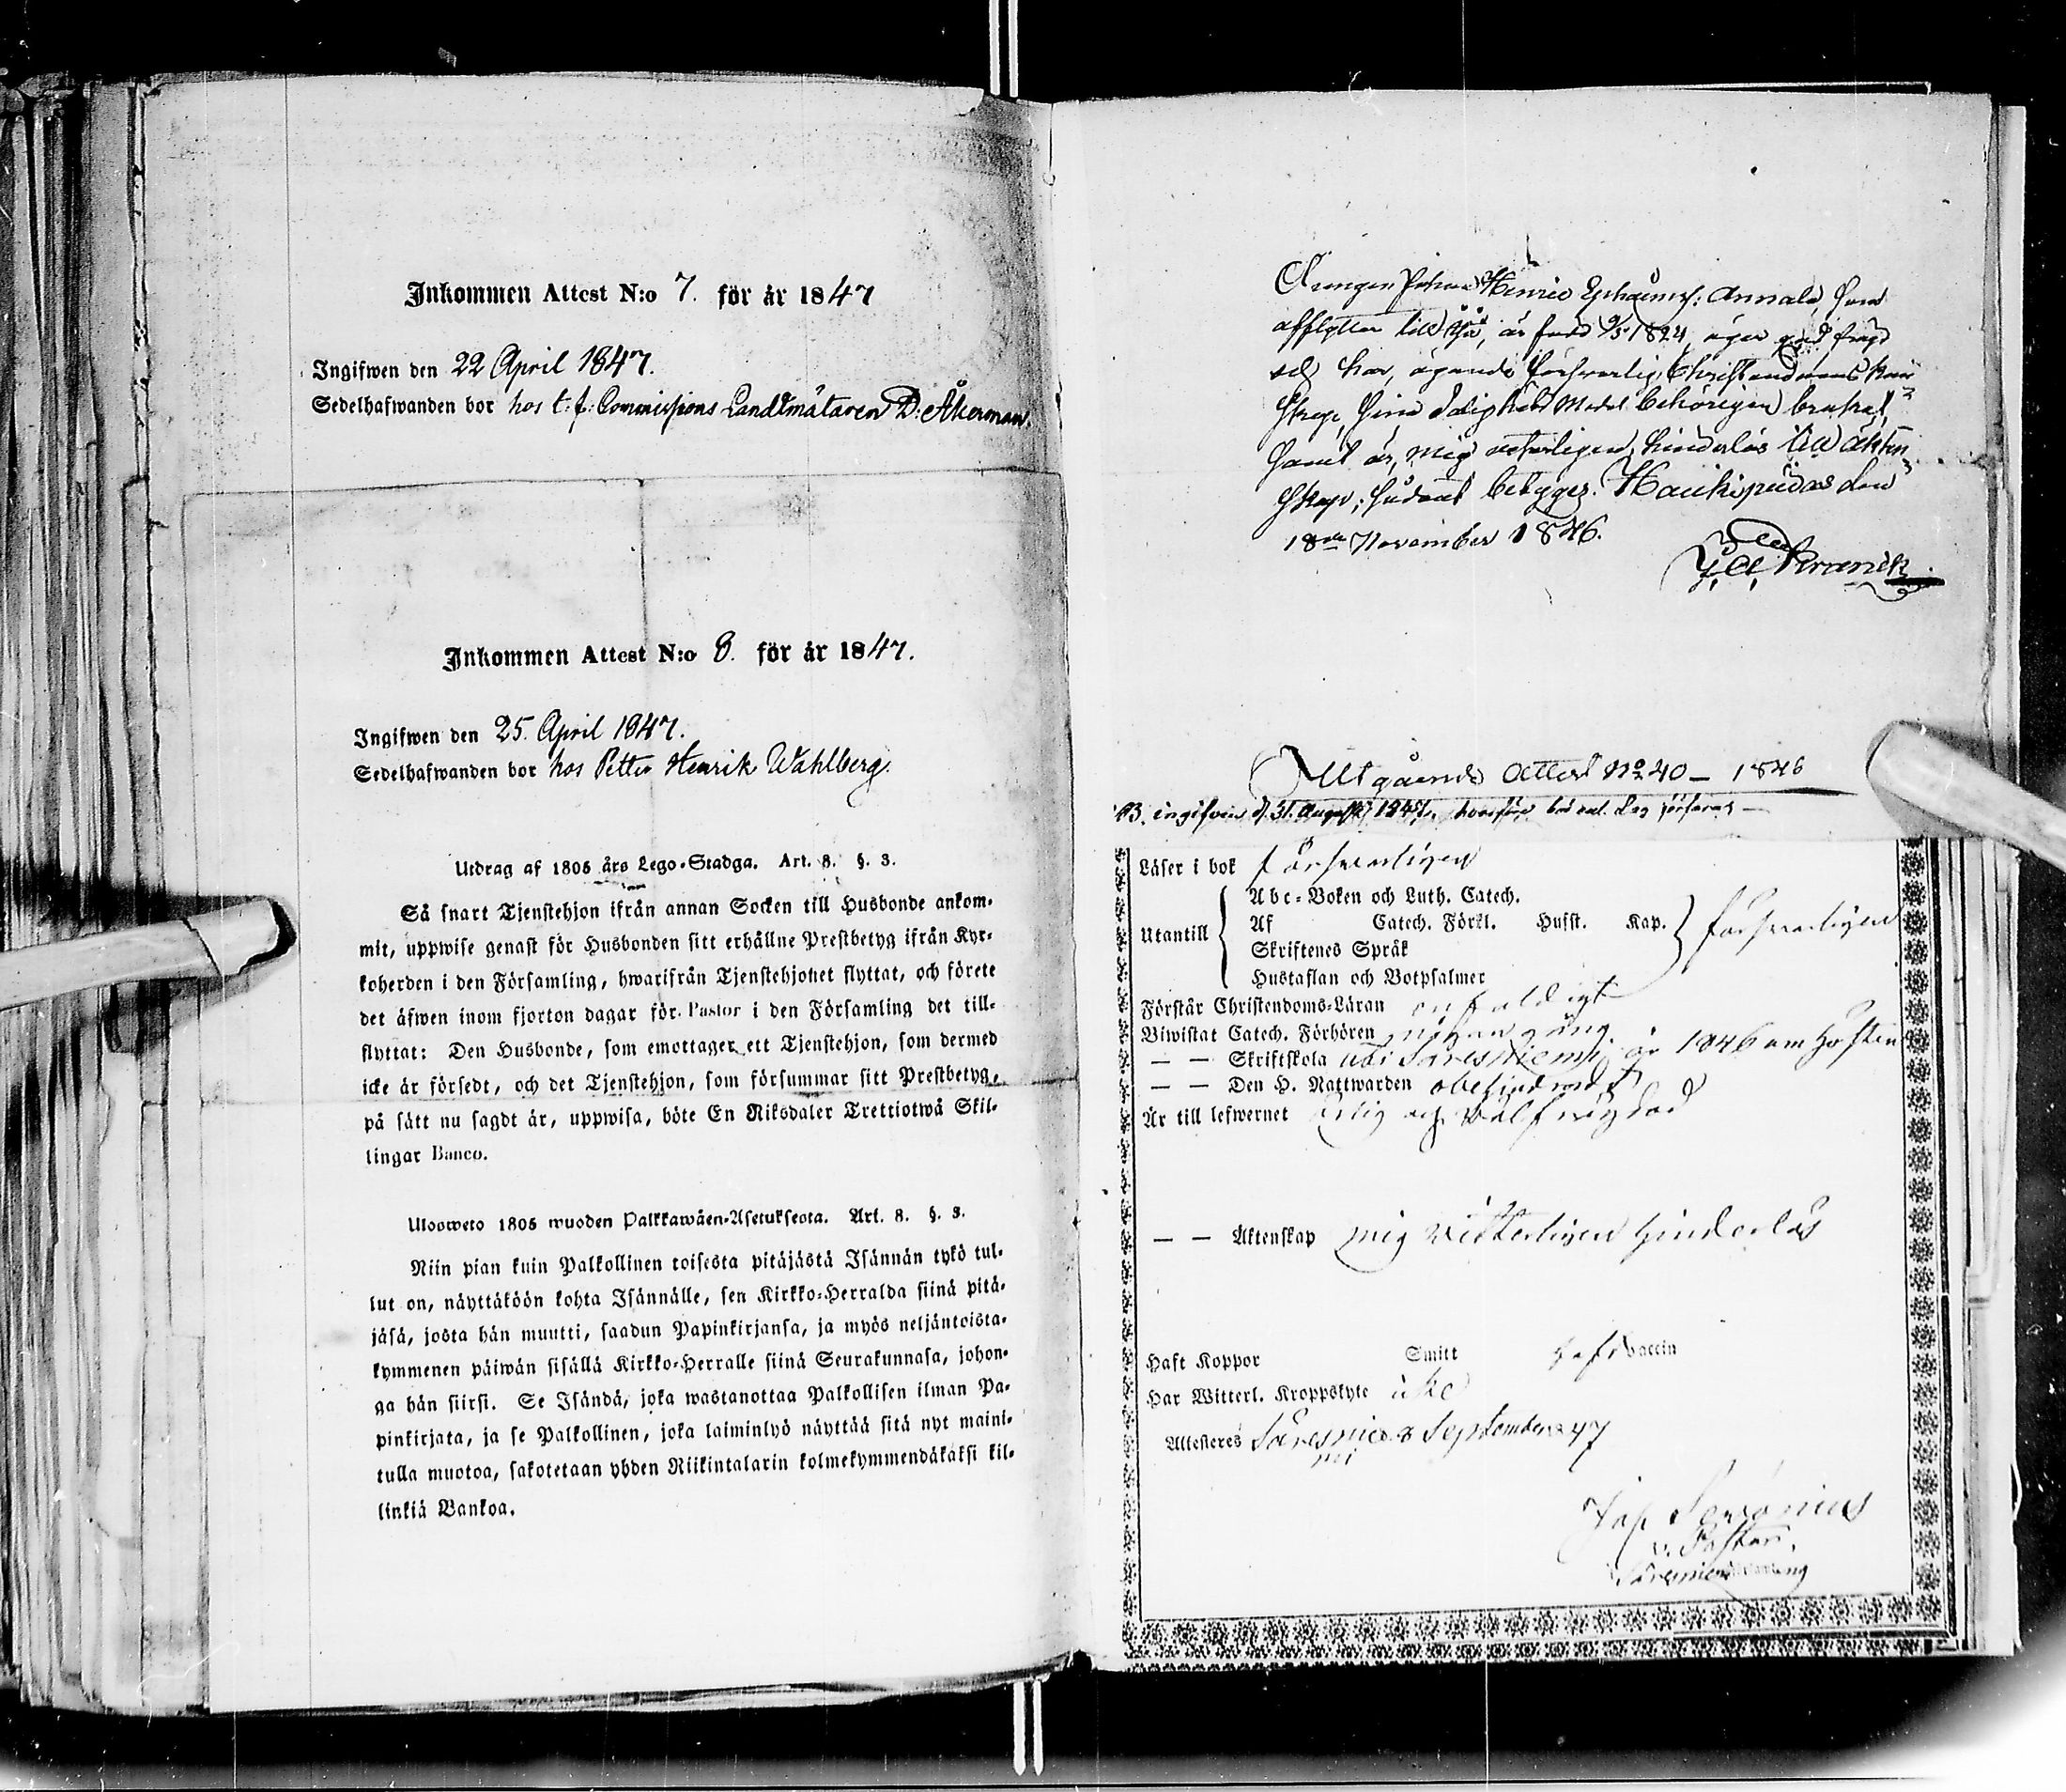 Inkommen Attest N:o 7. för år 1847
Ingifwen den 22 April 1847.
Sedelhafwanden bor hos t. f. Commissions Landtmätaren D: Åkerman.
Inkommen Attest N:o 8. för år 1847.
Ingifwen den 25. April 1847.
Sedelhafwanden bor hos Petter Henrik Wahlberg.
Utdrag af 1805 års Lego-Stadga. Art. 8. §. 3.
Så snart Tjenstehjon ifrån annan Socken till Husbonde ankom-
mit, uppwise genast för Husbonden sitt erhållne Prestbetyg ifrån Kyr-
koherden i den Församling, hwarifrån Tjenstehjonet flyttat, och förete
det äfwen inom fjorton dagar för Pastor i den Församling det till-
flyttat: Den Husbonde, som emottager ett Tjenstehjon, som dermed
icke är försedt, och det Tjenstehjon, som försummar sitt Prestbetyg,
på sätt nu sagdt är, uppwisa, böte En Riksdaler Trettiotwå Skil-
lingar Banco.
Ulosweto 1805 wuoden Palkkawäen-Asetuksesta. Art. 8. §. 3.
Niin pian kuin Palkollinen toisesta pitäjästä Isännän tykö tul-
lut on, näyttäköön kohta Isännälle, sen Kirkko-Herralda siinä pitä-
jäsä, josta hän muutti, saadun Papinkirjansa, ja myös neljäntoista-
kymmenen päiwän sisällä Kirkko-Herralle siinä Seurakunnasa, johon-
ga hän siirsi. Se Isändä, joka wastanottaa Palkollisen ilman Pa-
pinkirjata, ja se Palkollinen, joka laiminlyö näyttää sitä nyt maini-
tulla muotoa, sakotetaan yhden Riikintalarin kolmekymmendäkaksi kil-
linkiä Bankoa.
Drengen Johan Henric Annala, som
afflyttar till är född 9/5 1824, äger god frägd
och har, ägande försvarlig Christendoms kun
skap, sina Salighets Medel behörigen brukat,
samt är, mig veterligen, hinderlös till äkten
skap; sådant betygger. Haukipudas den
18de November 1846.
Franck
Utgående Attest No 40 – 1846
NB. ingifven d. 31. Augusti 1847, hvarföre
Läser i bok försvarligen
Utantill
Abc-Boken och Luth. Catech.
Af Catech. Förkl. Husst. Kap. försvarligen
Skriftenes Språk
Hustaflan och Botpsalmer
Förstår Christendoms-Läran enfaldigt
Biwistat Catech. Förhören någon gång
— — Skriftskola år 1846 om Hösten
— — Den H. Nattwarden obehindradt
Är till lefwernet ärlig och välfrägdad
— — Äktenskap mig vitterligen hinderlös
Haft Koppor Smitt haft vaccin
Har Witterl. Kroppslyte icke
Attesteras 8 September 47
v. Pastor.